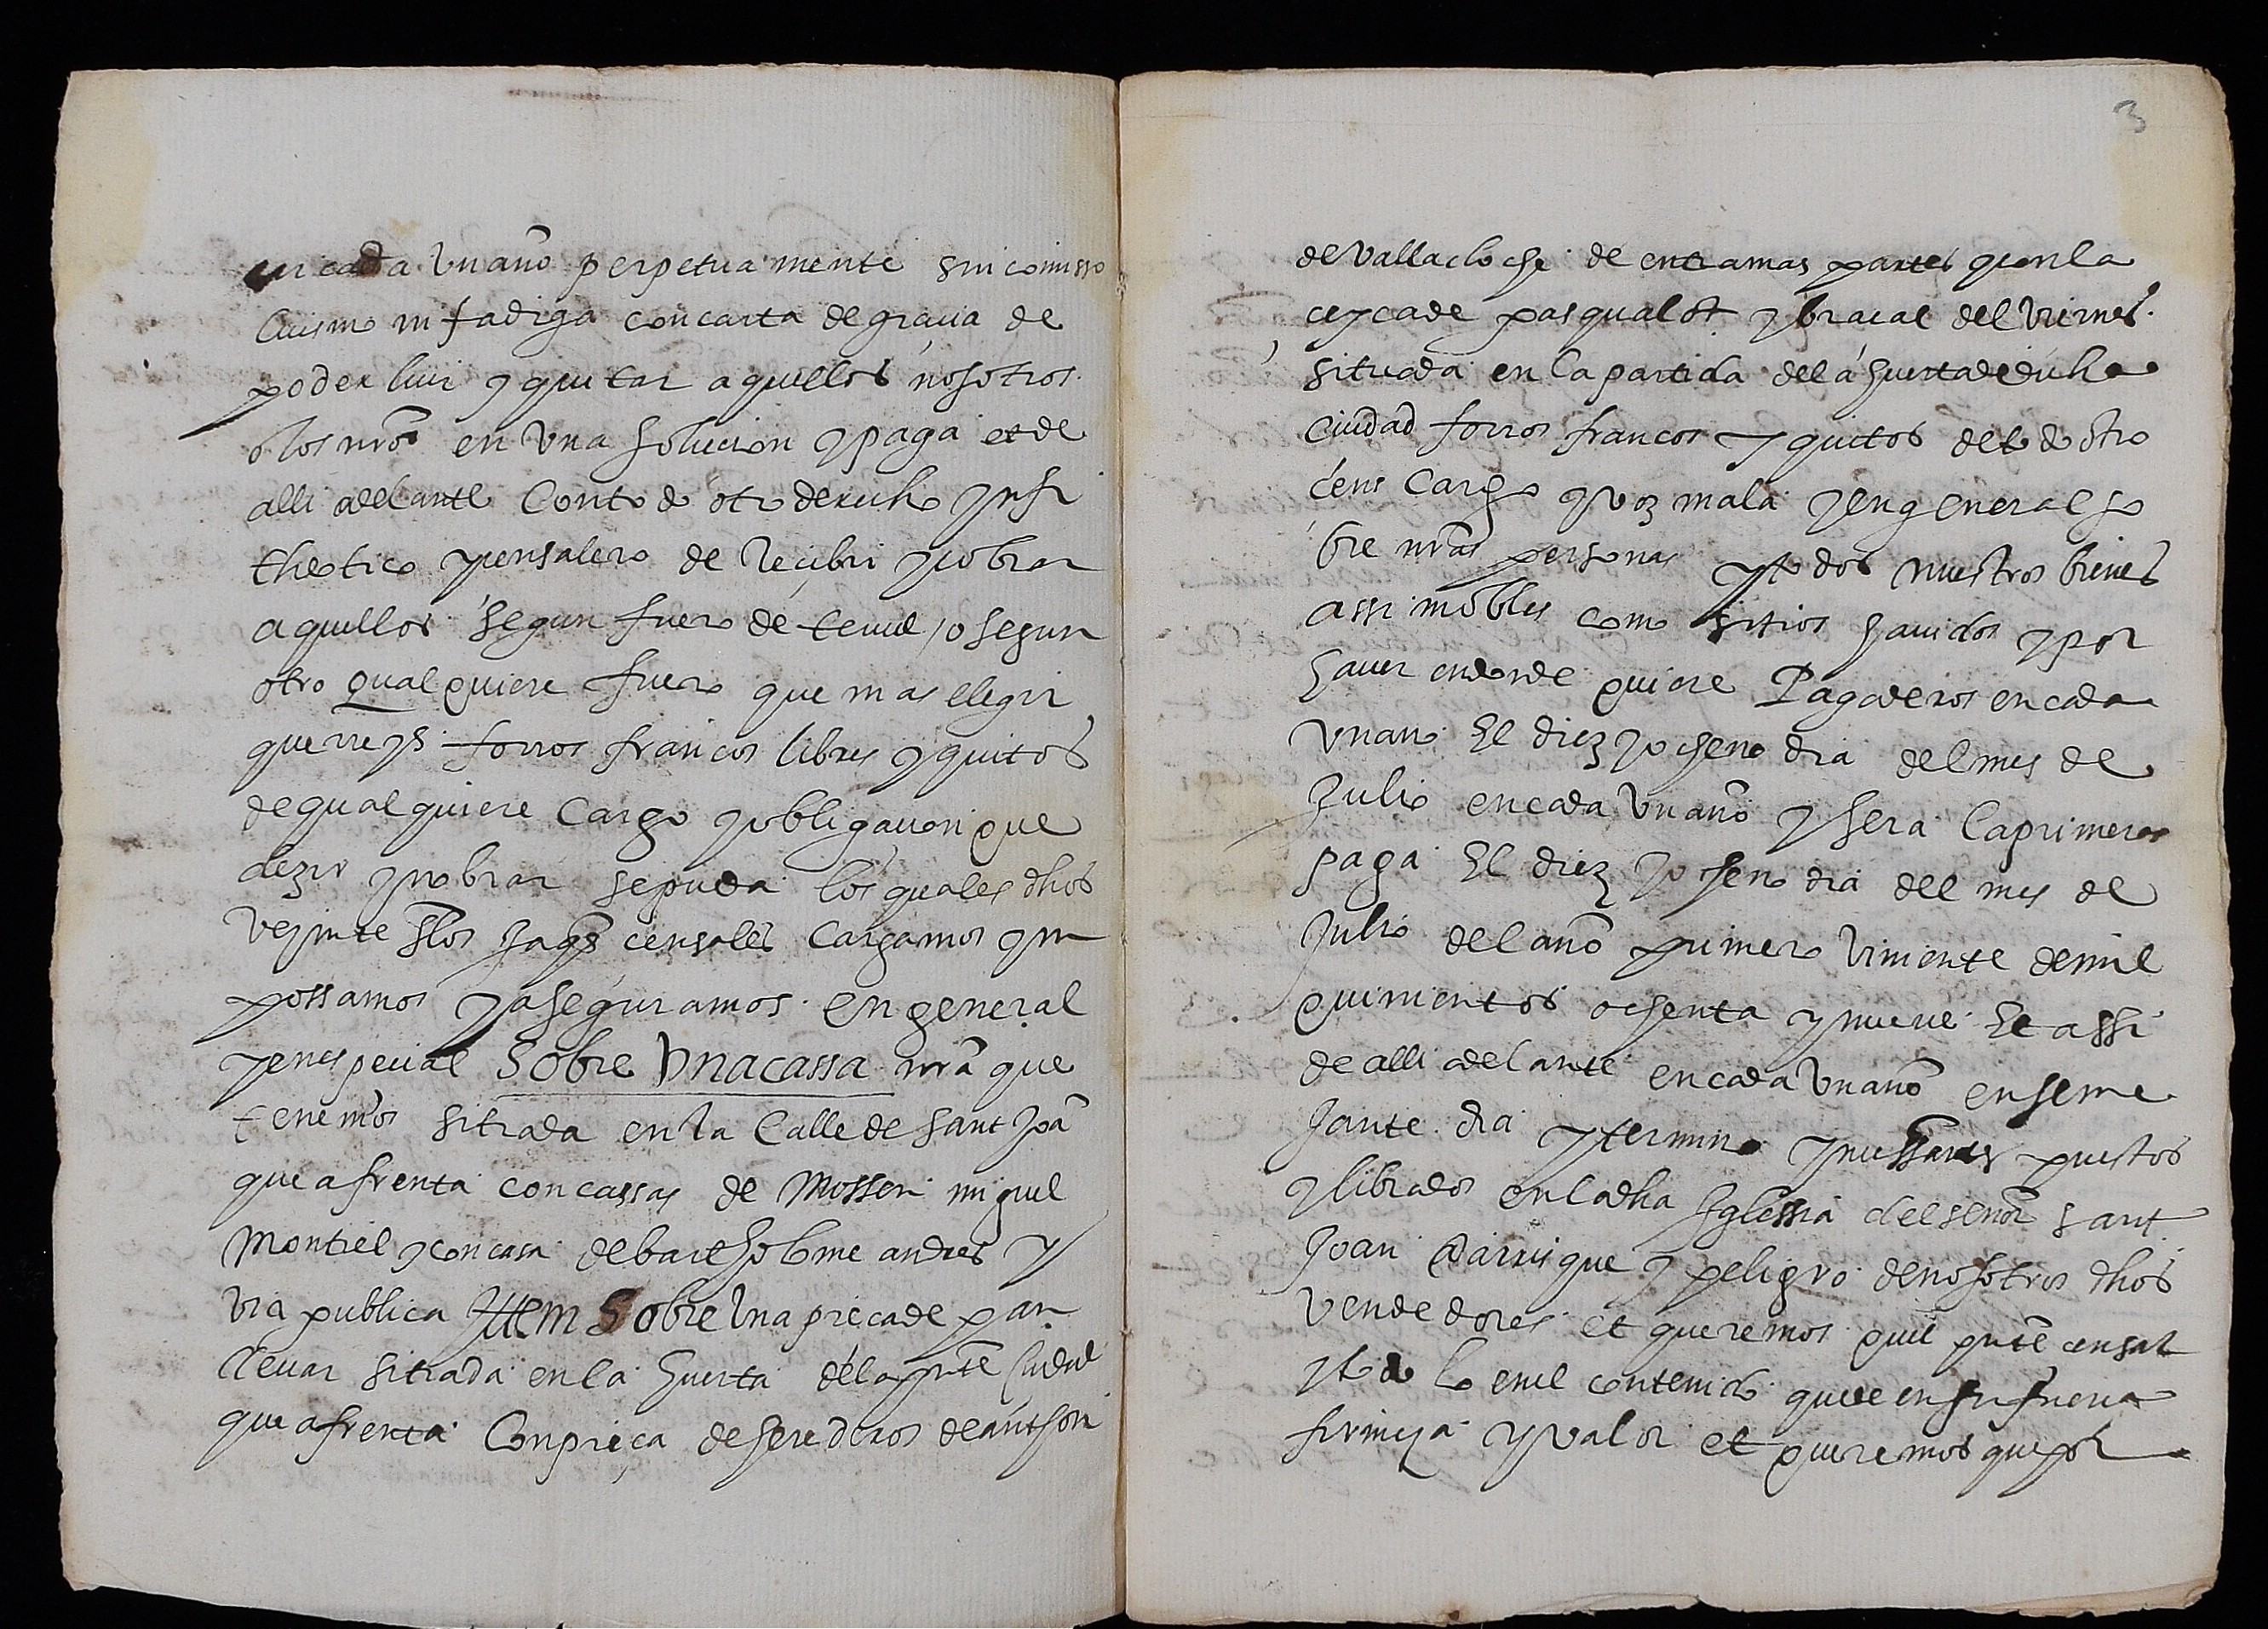 en cada un año perpetuamente sin comisso
luismo ni fadiga con carta de gracia de
poder luir y quitar aquellos nosotros
o los nros en una solucion y paga et de
alli adelante con todo otro derecho ynfi
theotico y censalero de recibir y cobrar
aquellos segun fuero de teruel / o segun
otro qualquiere fuero que mas elegir
querreys forros francos libres y quitos
de qualquiere cargo y obligacion que
dezir y nobrar se pueda los quales dhos
veynte slos jaqs censales cargamos ym
possamos y aseguramos en general
y en special Sobre Una cassa nra que
tenemos sitiada en la Calle de Sant Joã
que afrenta con cassas de Mossen miguel
Montiel y con casa de bartholome andres y
via publica Ittem Sobre una pieca de pan
llevar sitiada en la huerta de la pnte ciudad
que afrenta con pieça de herederos de anthon
3
de Vallacloche de entramas partes y con la
cequia de pasqualet y bracal del viernes
situada en la partida de la huerta de dicha
ciudad forros francos y quitos de todo otro
cens cargo y voz mala y en general so
bre nras personas y todos nuestros bienes
assi mobles como sitios havidos y por
haver en donde quiere Pagaderos en cada
un ano El diez y ocheno dia del mes de
Julio en cada un año y sera la primera
paga El diez y ocheno dia del mes de
Julio del año primero viniente de mil
quinientos ochenta y nueve Et assi
de alli adelante en cada un año en seme
jante dia y termino y puestos
y librados en la dha Iglessia del señor Sant
Joan a arrisque y peligro de nosotros dhos
vendedores et queremos quel pnte censal
y todo lo en el contenido quede en su fuerca
firmeza y valor et queremos que por